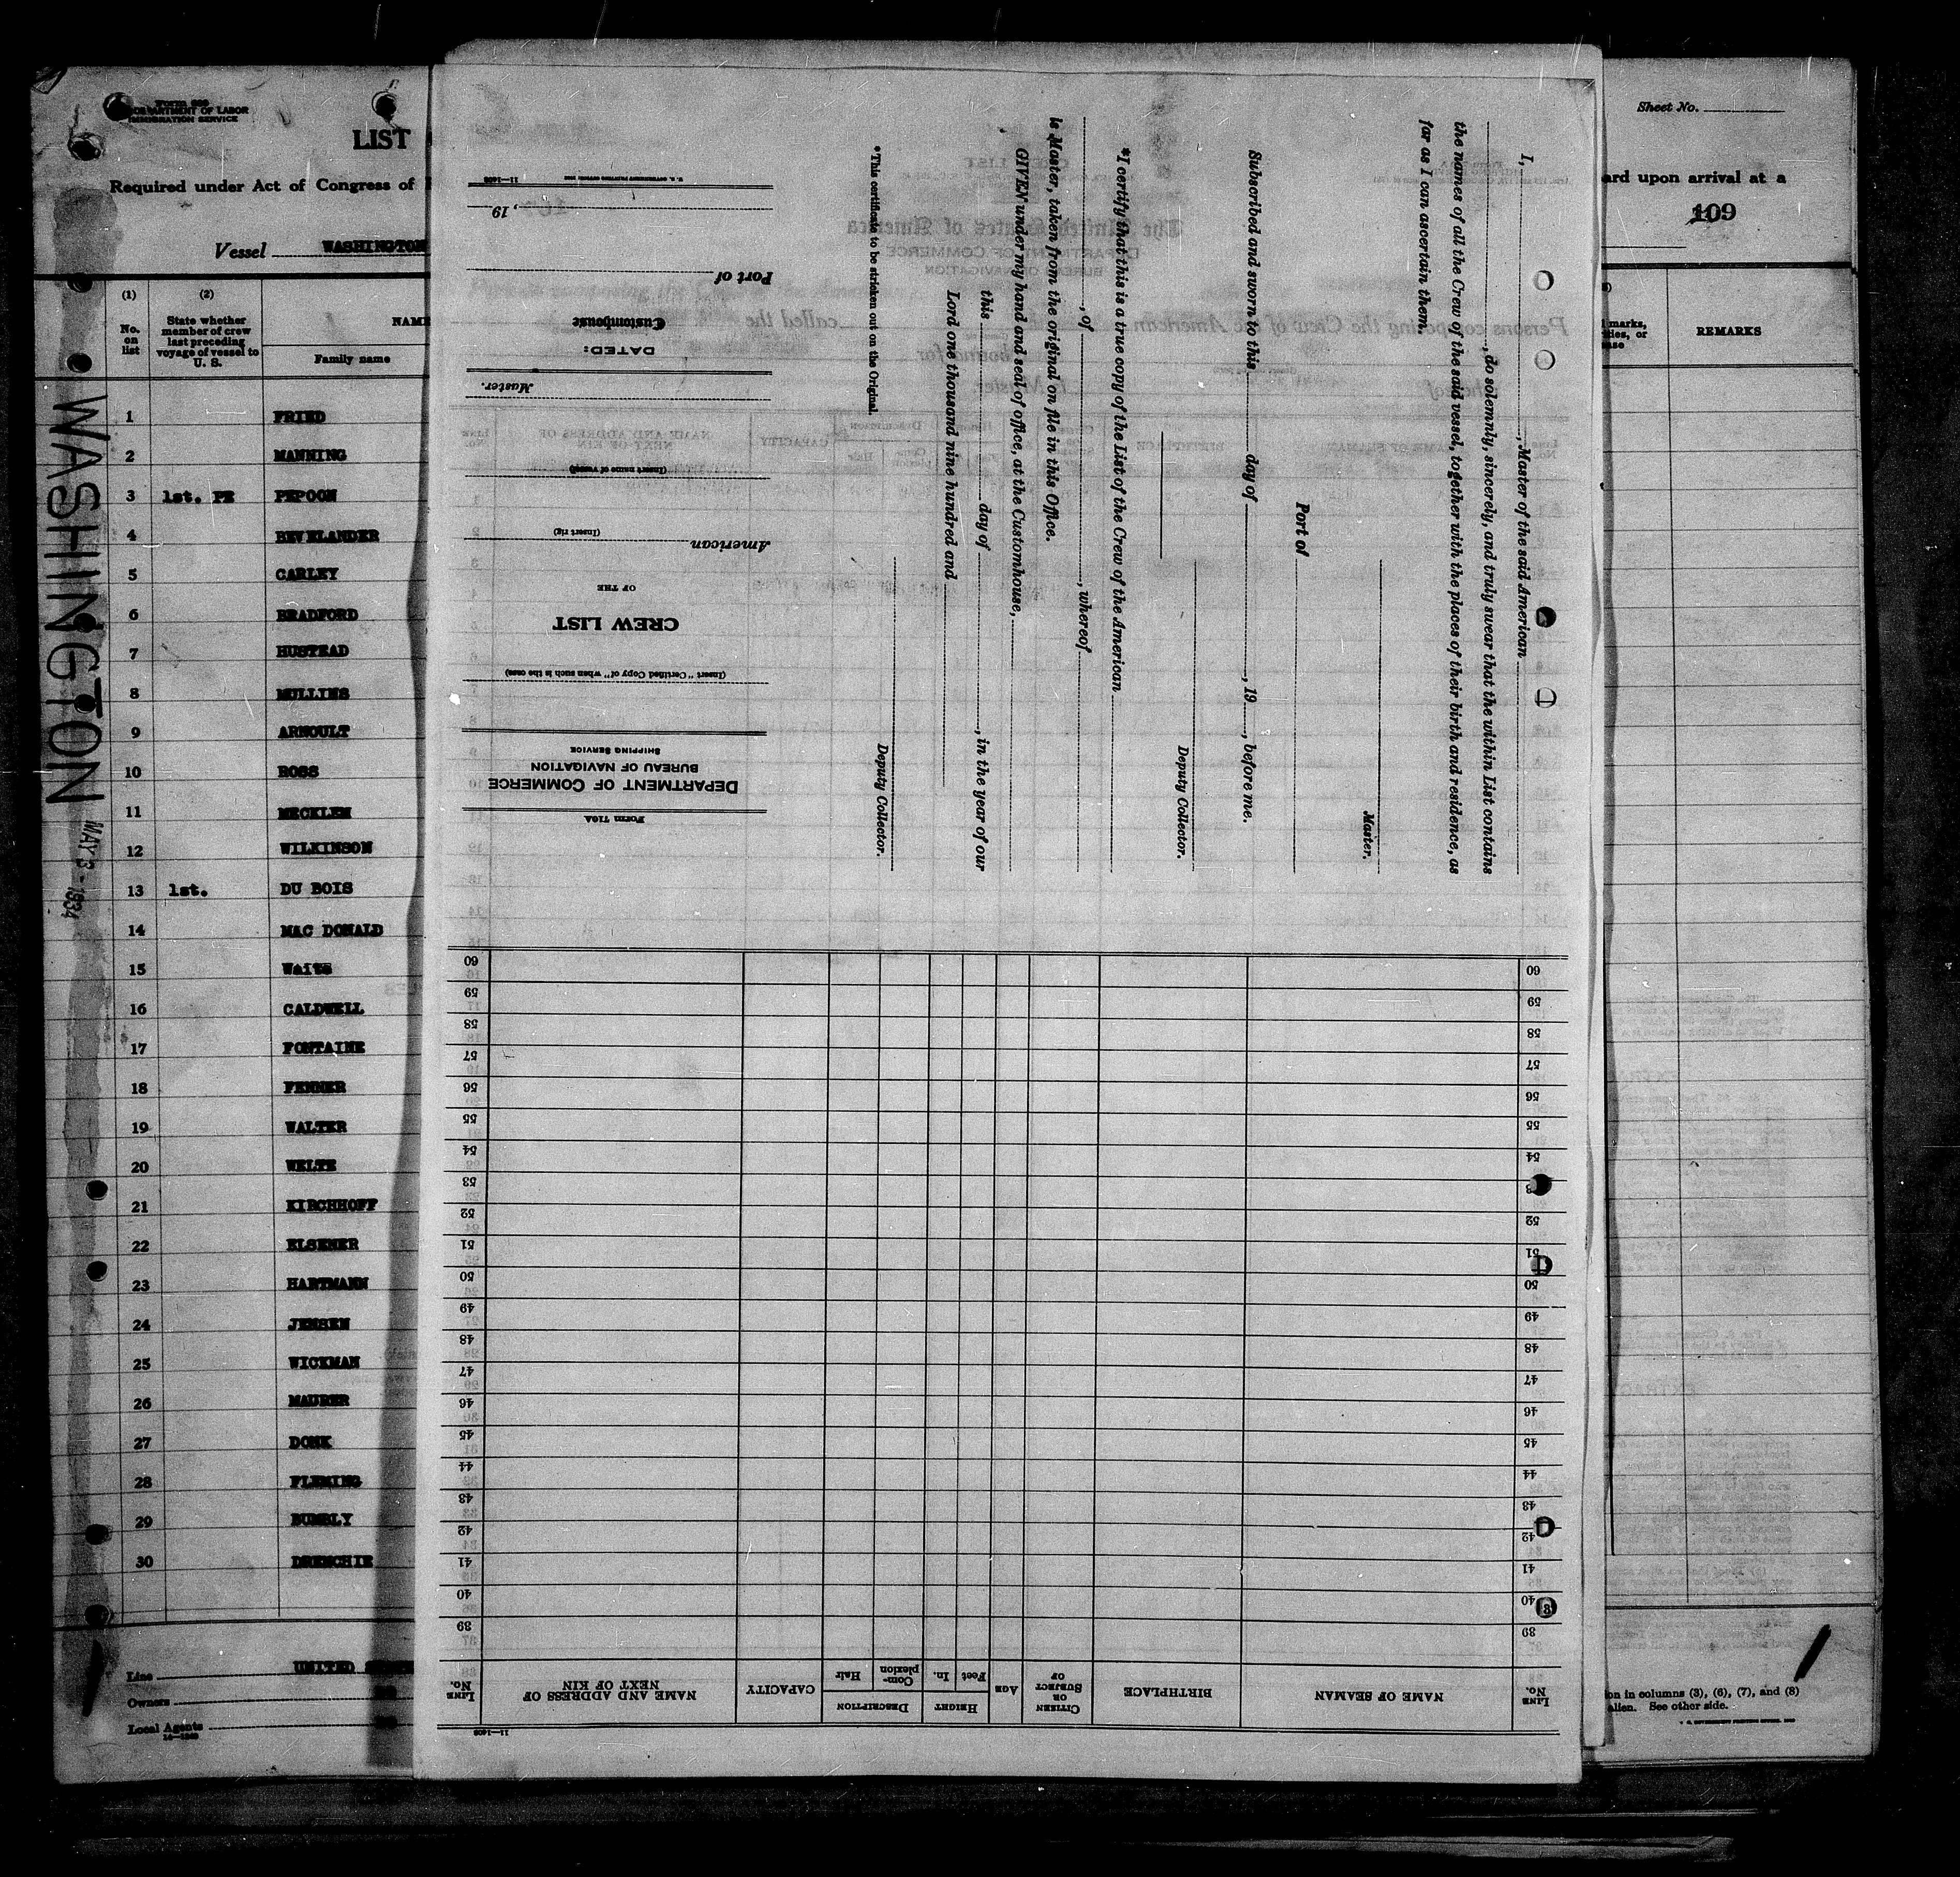 Form 689
DEPARTMENT OF LABOR
IMMIGRATION SERVICE
LIST
Required under Act of Congress of
Vessel WASHINGTON
(1)
No. on list
(2)
State whether member of crew last preceding voyage of vessel to U. S.
NAME
Family name
1 FRIED
2 MANNING
3 1st. PE PEPOON
4 BEVELANDER
5 CARLEY
6 BRADFORD
7 HUSTEAD
8 MULLINS
9 ARNOULT
10 ROSS
11 MECKLEM
12 WILKINSON
13 1st. DU BOIS
14 MAC DONALD
15 Waite
16 CALDWELL
17 FONTAINE
18 FENNER
19 WALTER
20 WELTE
21 KIRCHHOFF
22 ELSENER
23 HARTMANN
24 JENSEN
25 WICKMAN
26 MAURER
27 DONK
28 FLEMING
29 BUMBLY
30 DRENCHIE
Line UNITED
Owners
Local Agents
WASHINGTON
MAY 3 - 1934
Sheet No.
ard upon arrival at a
109
marks,
REMARKS
on in columns (3), (6), (7), and (8)
alien. See other side.
I, , Master of the said American
, do solemnly, sincerely, and truly swear that the within List contains
the names of all the Crew of the said vessel, together with the places of their birth and residence, as
far as I can ascertain them.
Master.
Port of
Subscribed and sworn to this day of , 19 , before me.
Deputy Collector.
*I certify that this is a true copy of the List of the Crew of the American
, of , whereof
is Master, taken from the original on file in this Office.
GIVEN under my hand and seal of office, at the Customhouse,
this day of , in the year of our
Lord one thousand nine hundred and
Deputy Collector.
*This certificate to be stricken out on the Original.
Form 710A
DEPARTMENT OF COMMERCE
BUREAU OF NAVIGATION
SHIPPING SERVICE
(Insert "Certified Copy of" when such is the case)
CREW LIST
OF THE
American
(Insert rig)
(Insert name of vessel)
Master.
DATED:
Customhouse
Port of
, 19
11—1403
LINE No.
NAME OF SEAMAN
BIRTHPLACE
CITIZEN OR SUBJECT OF
AGE
HEIGHT
Feet
In.
DESCRIPTION
Complexion
Hair
CAPACITY
NAME AND ADDRESS OF NEXT OF KIN
LINE No.
39 39
40 40
41 41
42 42
43 43
44 44
45 45
46 46
47 47
48 48
49 49
50 50
51 51
52 52
53 53
54 54
55 55
56 56
57 57
58 58
59 59
60 60